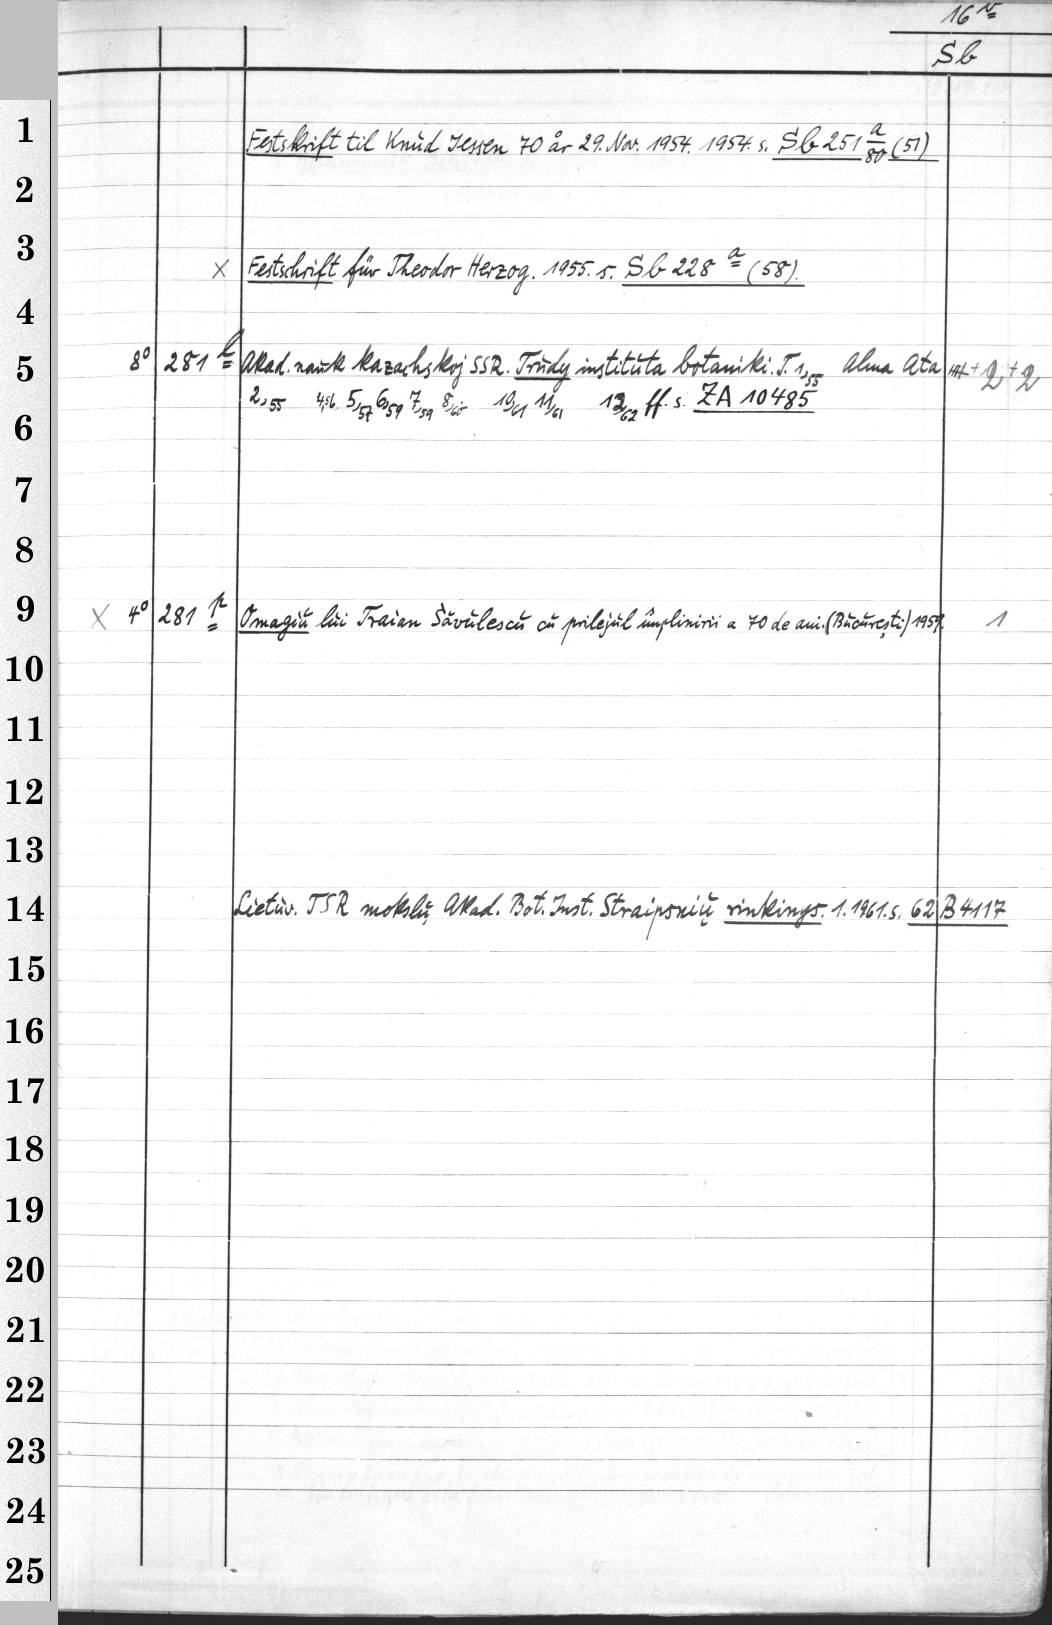 16 v
Sb
1
Festskrift til Knud Jessen 70 år 29. Nov. 1954. 1954. s. Sb 251 a/80 (51)
2
3
× Festschrift für Theodor Herzog. 1955. s. Sb 228 a (58).
4
5 8° 281 l Akad. nauk kazachskoj SSR. Trudy instituta botaniki. T. 1,55 Alma Ata +2 +2
2,55 4,56. 5,57 6,59 7,59 8,60 10,61 11,61 13,62 ff. s. ZA 10485
6
7
8
9 × 4° 281 p Omagiu lui Traian Săvulescu cu prilejul împlinirii a 70 de ani. (București) 1959. 1
10
11
12
13
14 Lietuv. TSR mokslų Akad. Bot. Inst. Straipsnių rinkinys. 1. 1961. s. 62 B 4117
15
16
17
18
19
20
21
22
23
24
25